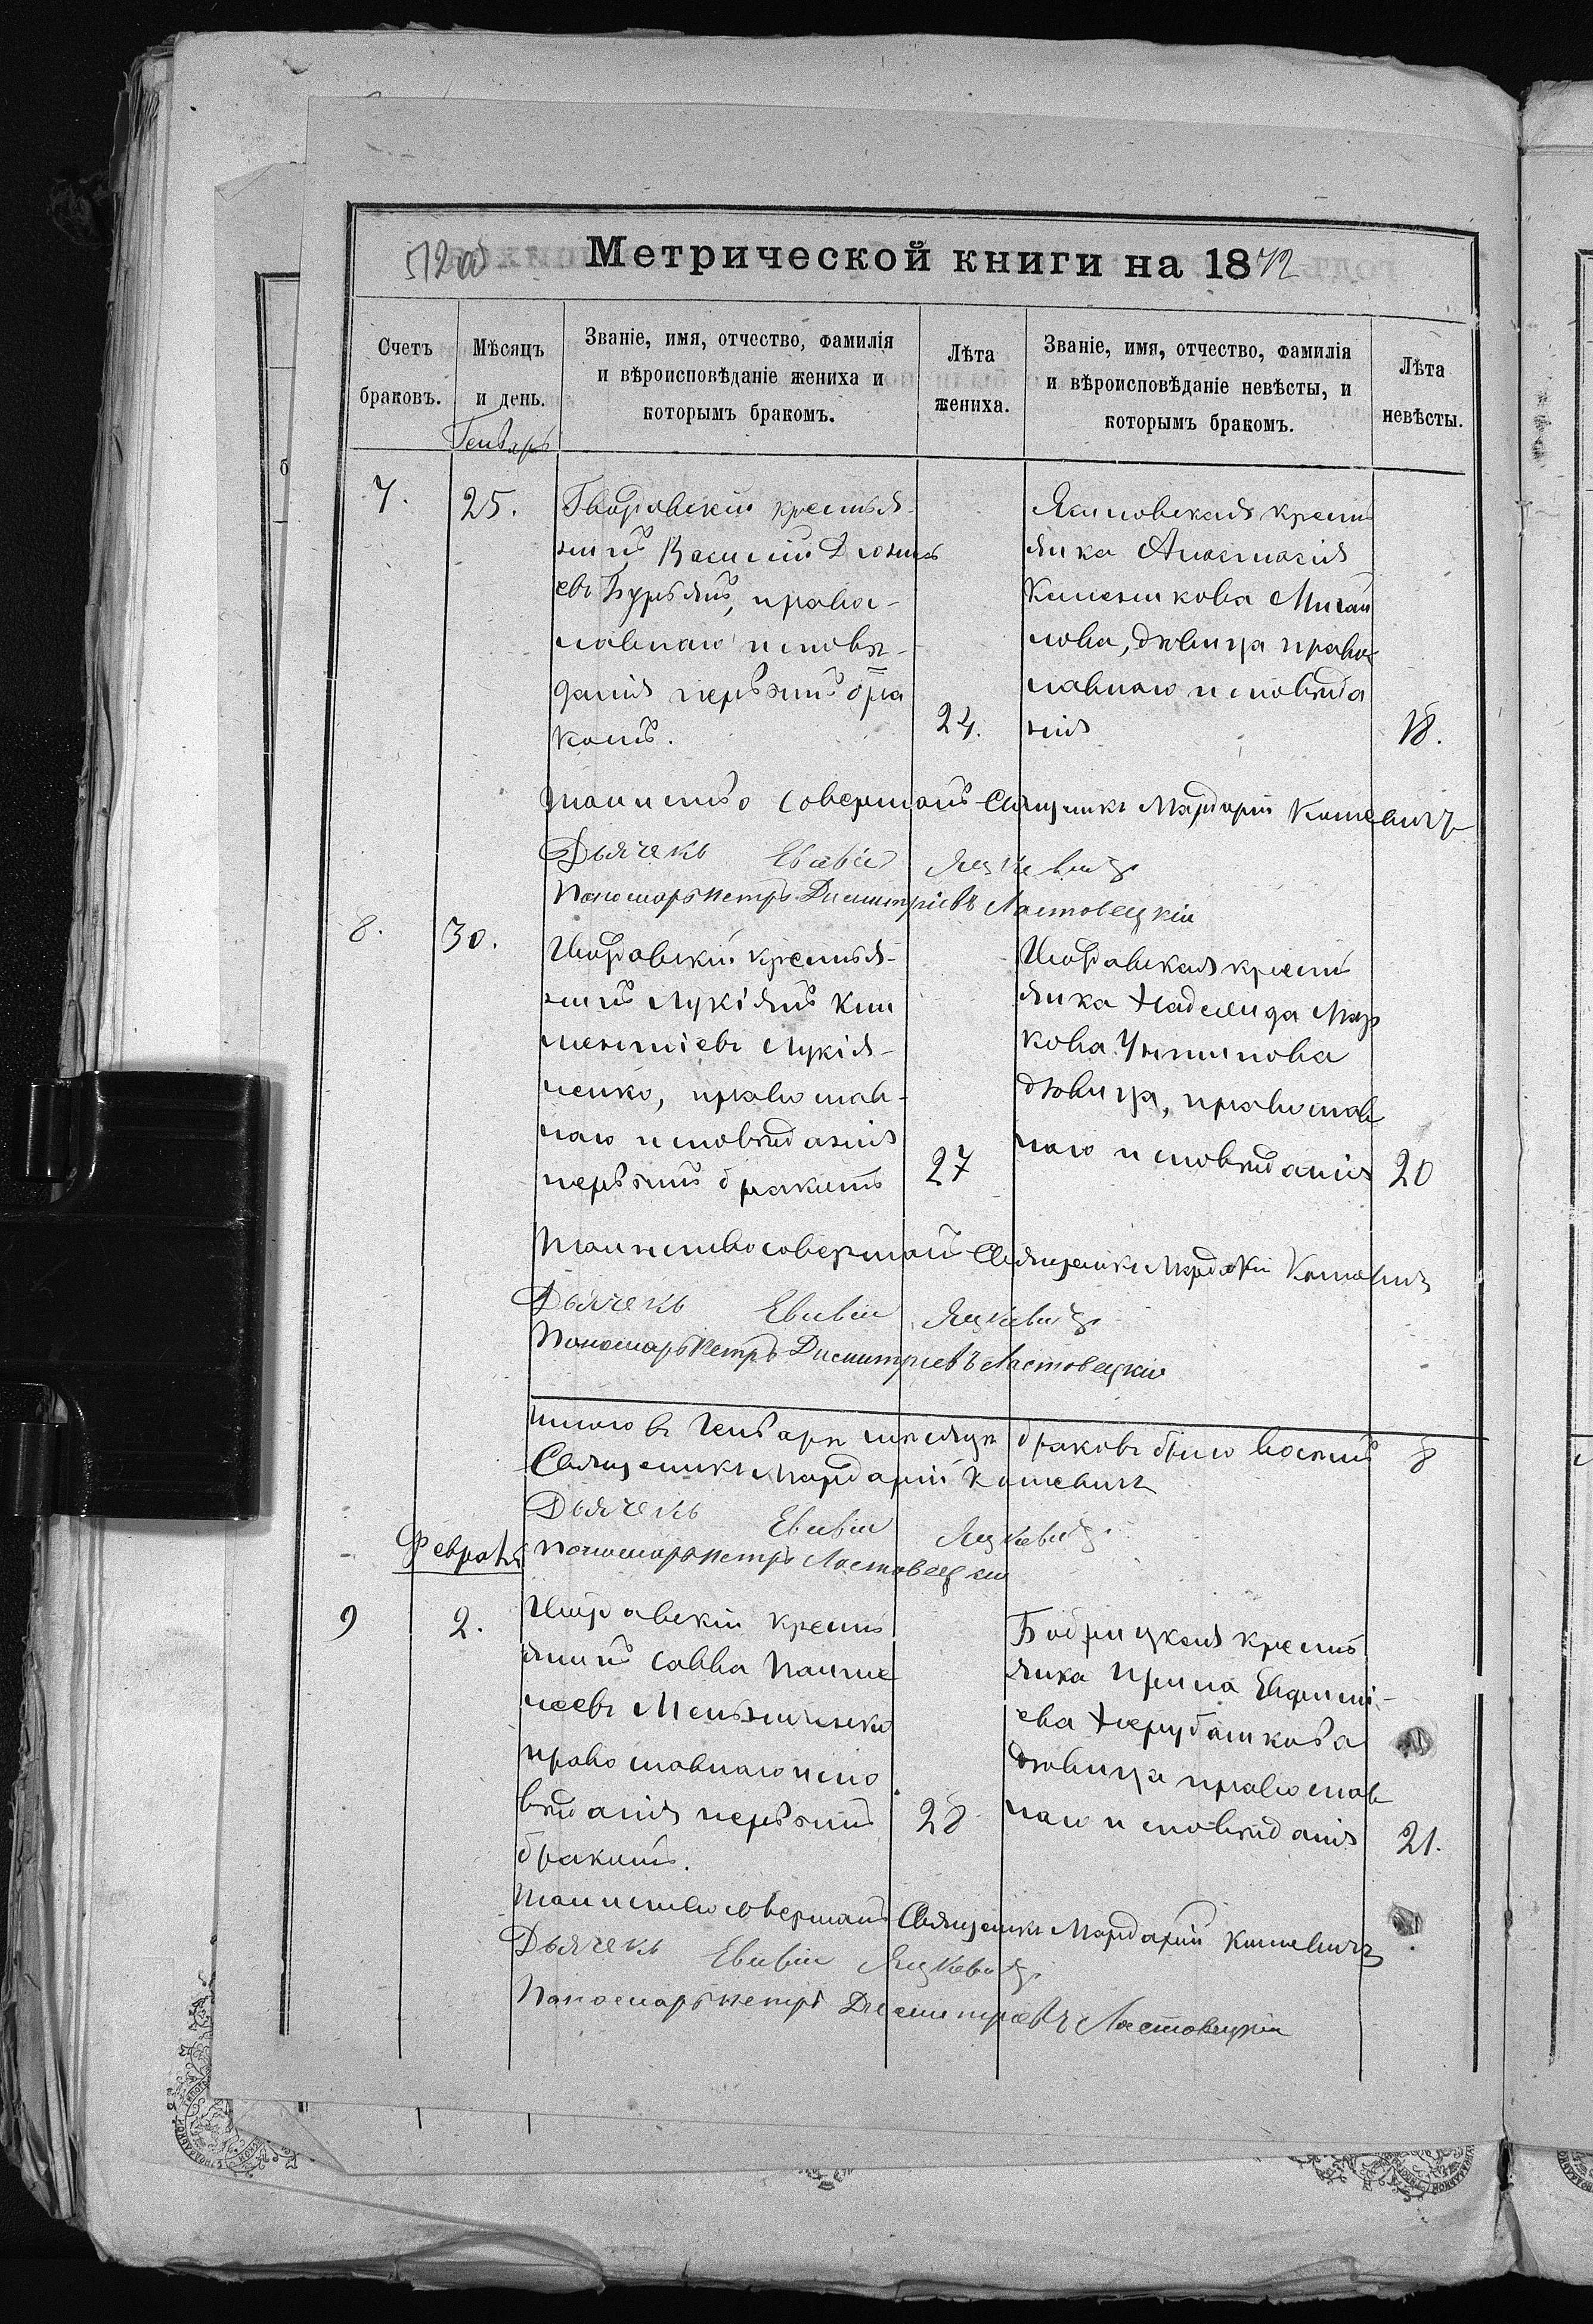 Метрической книги на 1872
Счетъ браковъ.
Мѣсяцъ и день.
Званіе, имя, отчество, фамилія
и вѣроисповѣданіе жениха и
которымъ бракомъ.
Лѣта
жениха.
Званіе, имя, отчество, фамилія
и вѣроисповѣданіе невѣсты, и
которымъ бракомъ.
Лѣта
невѣсты.
Генварь
7.
25.
крестья-
нинъ Василій
евъ Бурьянъ, правос-
лавнаго исповѣ-
данія первымъ бра
комъ.
24.
крестья
янка Анастасія
Клименкова Михай
лова, дѣвица правос
лавнаго исповѣда
нія
18.
Таинство совершалъ Священикъ Мардарій Котевичъ
Дьячекъ Евсевій Яцкевичъ
Пономарь Петръ Димитріевъ Ластовецкій
8.
30.
крестья-
нинъ Лукіянъ Кли
ментіевъ Лукія-
ненко, православ-
наго исповѣданія
первымъ бракомъ
27
крестья
янка Надежда Мар
кова
дѣвица, православ
наго исповѣданія
20
Таинство совершалъ Священикъ Мардарій Котевичъ
Дьячекъ Евсевій Яцкевичъ
Пономарь Петръ Димитріевъ Ластовецкій
Итого в Генварѣ мѣсяцѣ браковъ было восемъ 8
Священикъ Мардарій Котевичъ
Дьячекъ Евсевій Яцкевичъ
Пономарь Петръ Ластовецкій
Февраль
9
2.
крестья
янинъ Савва Панте
леевъ
православнаго испо
вѣданія первымъ
бракомъ.
28
Бобрицкая крестья
янка Ирина Евфимі-
ева
дѣвица православ
наго исповѣданія
21.
Таинство совершалъ Священикъ Мардарій Котевичъ
Дьячекъ Евсевій Яцкевичъ
Пономарь Петръ Димитріевъ Ластовецкій